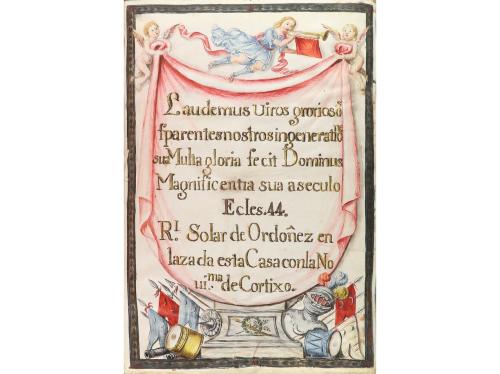 Laudemus Viros groriosõ
fparentes nostros in generatiõ
sua Multa gloria fecit Dominus
Magnificentia sua a seculo
Ecles.44.
R.l Solar de Ordoñez en
lazada esta Casa con la No
vi.ma de Cortixo.